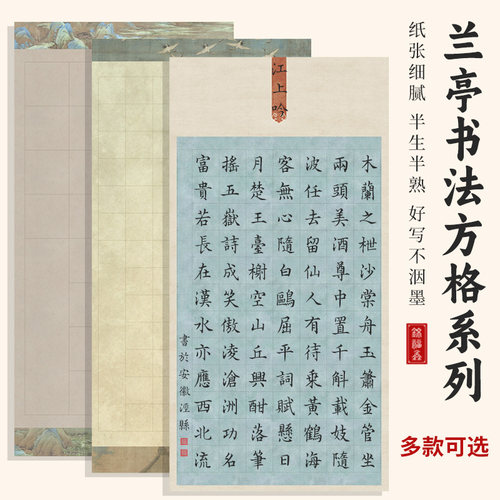 兰亭书法方格系列
纸张细腻 半生半熟 好写不洇墨
多款可选
江上吟
木蘭之枻沙棠舟玉簫金管坐
兩頭美酒尊中置千斛載妓隨
波任去留仙人有待乘黃鶴海
客無心隨白鷗屈平詞賦懸日
月楚王臺榭空山丘興酣落筆
搖五嶽詩成笑傲凌滄洲功名
富貴若長在漢水亦應西北流
書於安徽涇縣